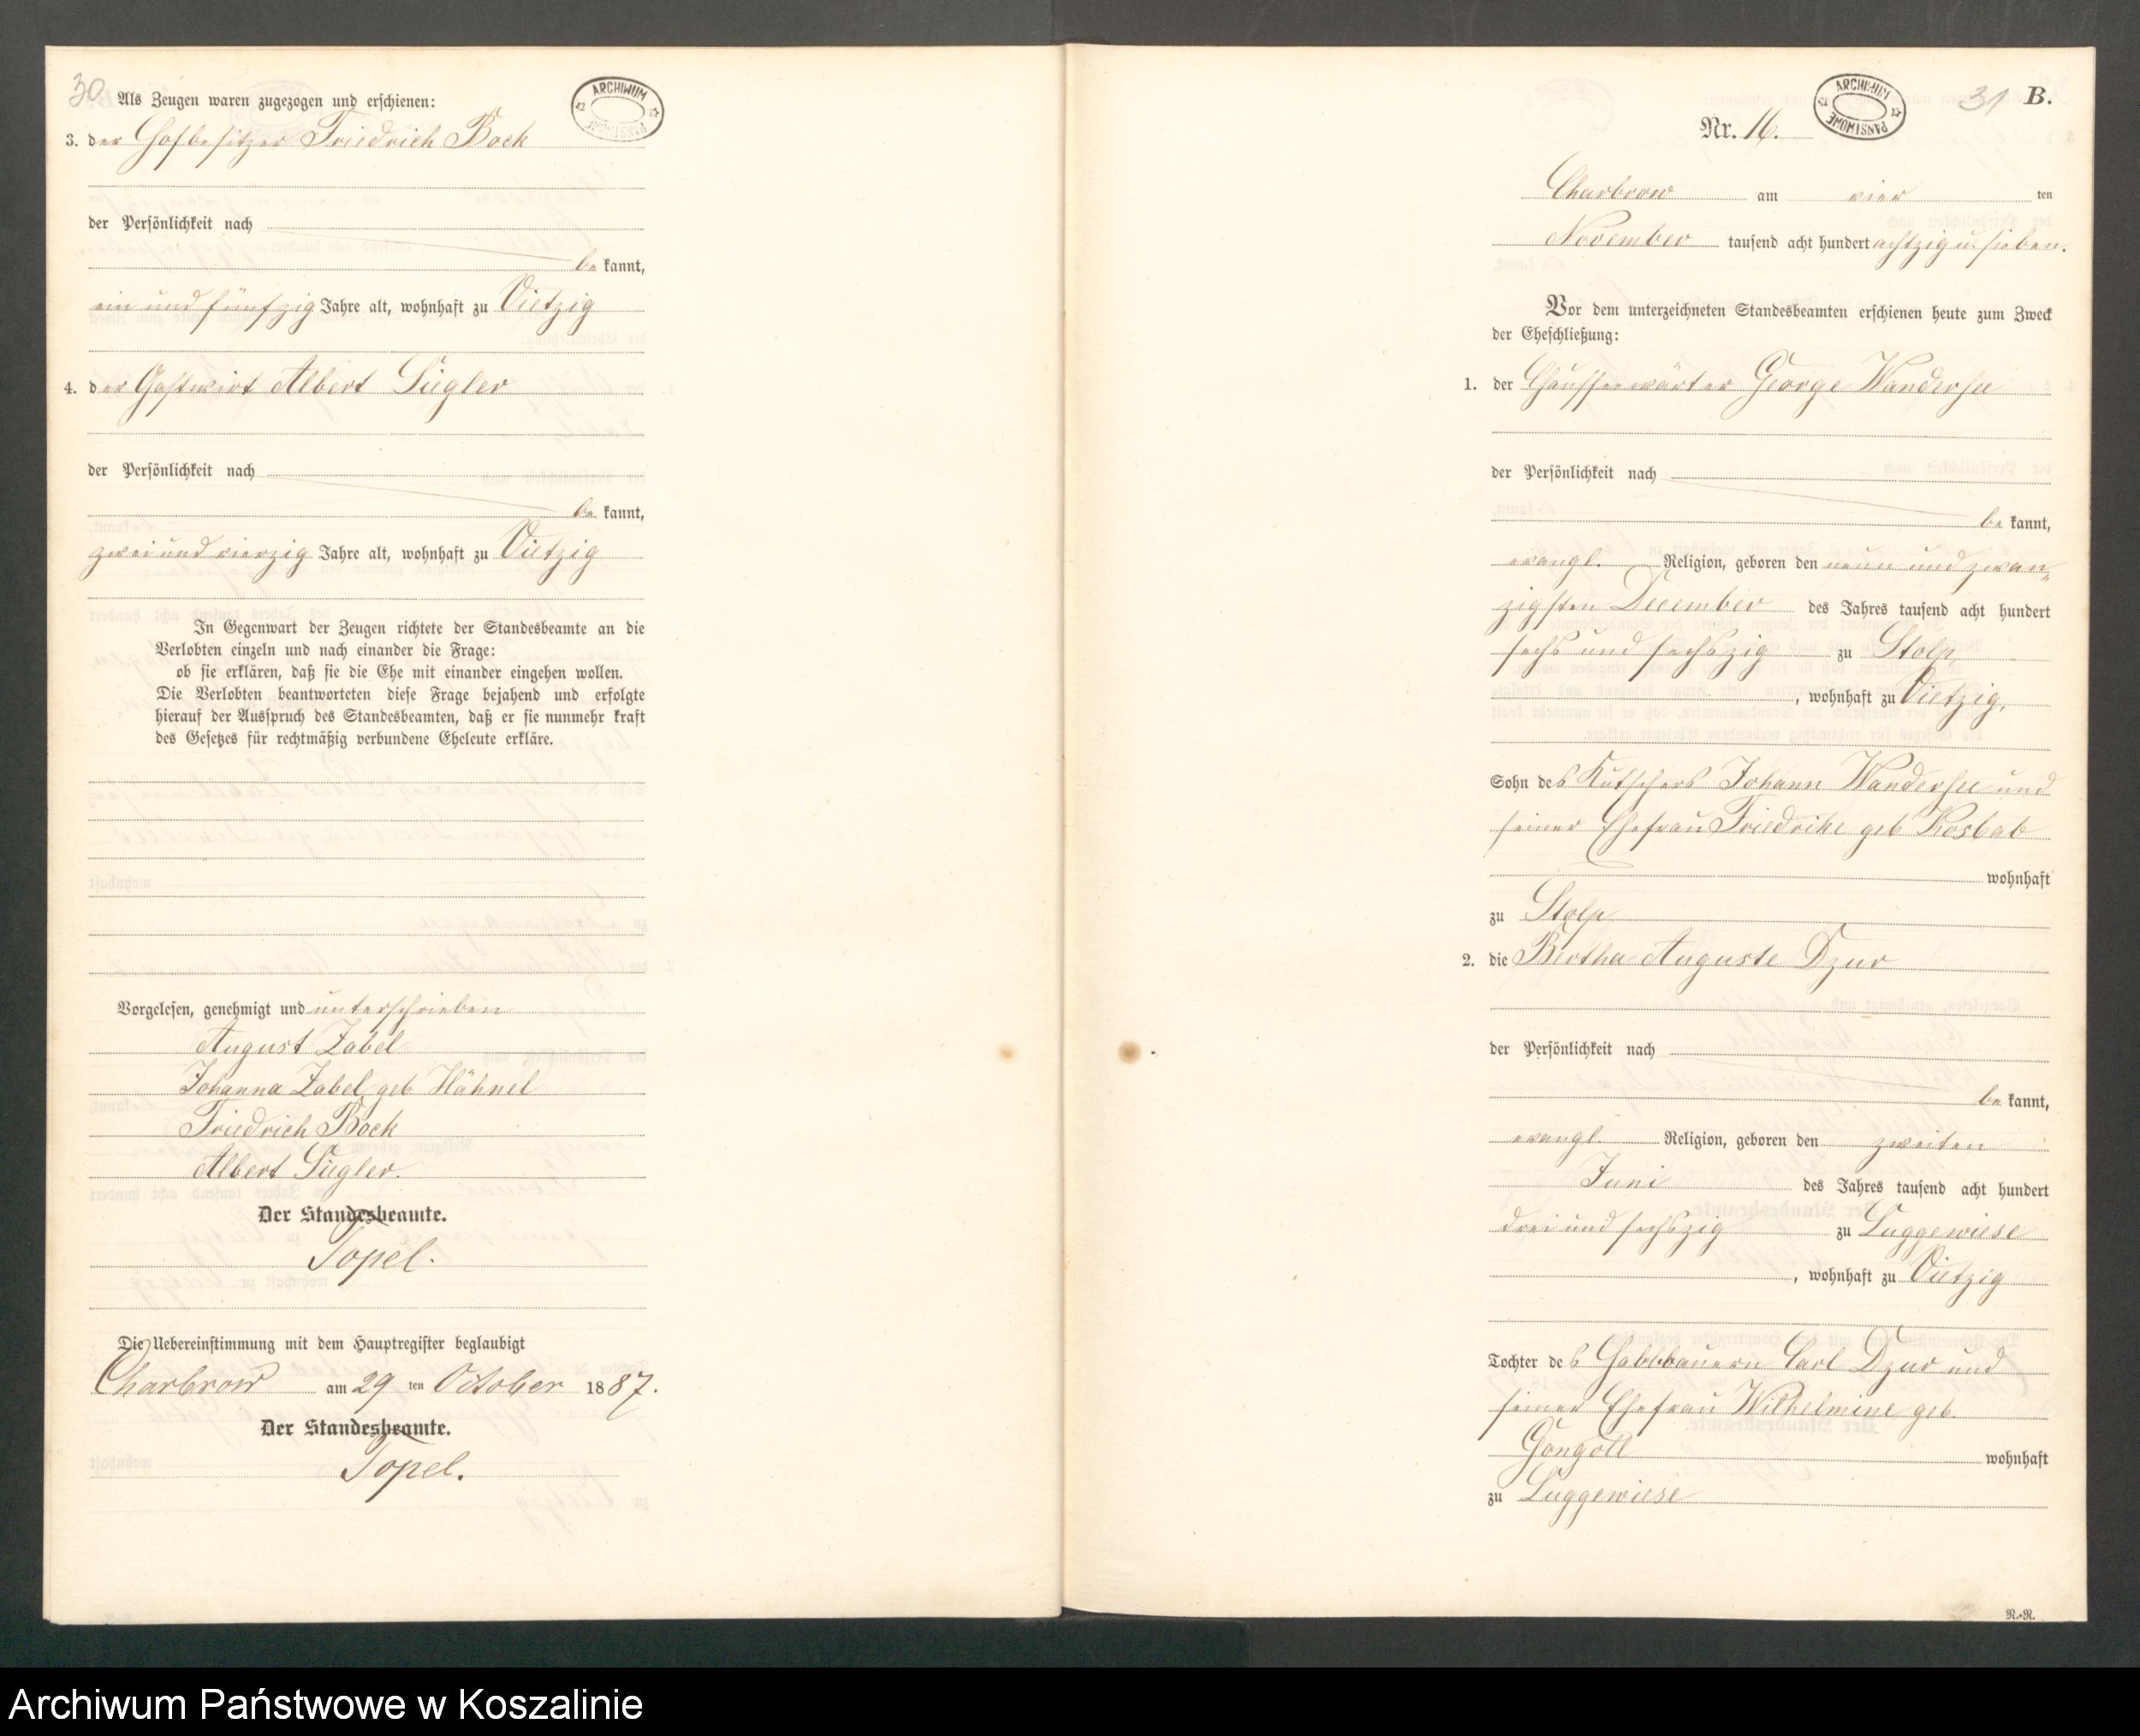 30
Als Zeugen waren zugezogen und erschienen:
ARCHIWUM PAŃSTWOWE
3. der Hofbesitzer Friedrich Bock
der Persönlichkeit nach
bekannt,
ein und fünfzig Jahre alt, wohnhaft zu Vietzig
4. der Gastwirt Albert Ziegler
der Persönlichkeit nach
bekannt,
zwei und vierzig Jahre alt, wohnhaft zu Vietzig
In Gegenwart der Zeugen richtete der Standesbeamte an die
Verlobten einzeln und nach einander die Frage:
ob sie erklären, daß sie die Ehe mit einander eingehen wollen.
Die Verlobten beantworteten diese Frage bejahend und erfolgte
hierauf der Ausspruch des Standesbeamten, daß er sie nunmehr kraft
des Gesetzes für rechtmäßig verbundene Eheleute erkläre.
Vorgelesen, genehmigt und unterschrieben
August Zabel
Johanna Zabel geb Hähnel
Friedrich Bock
Albert Ziegler.
Der Standesbeamte.
Topel.
Die Uebereinstimmung mit dem Hauptregister beglaubigt
Charbrow am 29 ten October 1887.
Der Standesbeamte.
Topel.
ARCHIWUM PAŃSTWOWE
31 B.
Nr. 16.
Charbrow am vier ten
November tausend acht hundert achtzig u. sieben.
Vor dem unterzeichneten Standesbeamten erschienen heute zum Zweck
der Eheschließung:
1. der Chausseewärter George Wandersee
der Persönlichkeit nach
bekannt,
evangl. Religion, geboren den neun und zwan-
zigsten December des Jahres tausend acht hundert
sechs und sechszig zu Stolp,
, wohnhaft zu Vietzig,
Sohn des Kutschers Johann Wandersee und
seiner Ehefrau Friedrike geb Kosbab
wohnhaft
zu Stolp
2. die Bertha Auguste Dzur
der Persönlichkeit nach
bekannt,
evangl. Religion, geboren den zweiten
Juni des Jahres tausend acht hundert
drei und sechszig zu Luggewiese
, wohnhaft zu Vietzig
Tochter des Halbbauern Carl Dzur und
seiner Ehefrau Wilhelmine geb.
Gongoll wohnhaft
zu Luggewiese
N.-R.
Archiwum Państwowe w Koszalinie